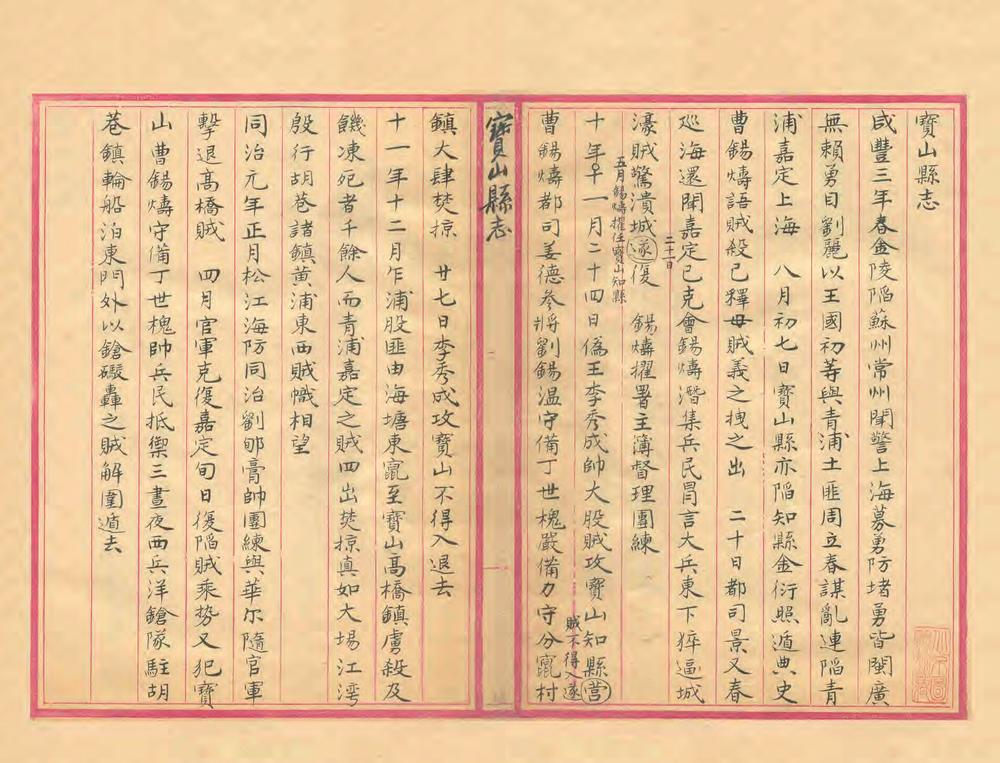 寶山縣志
咸豐三年春金陵陷蘇州常州聞警上海募勇防堵勇皆閩廣
無賴勇目劉麗以王國初等與青浦土匪周立春謀亂連陷青
浦嘉定上海　八月初七日寶山縣亦陷知縣金衍照遁典史
曹錫燾語賊殺已釋毋賊義之拽之出　二十日都司景又春
巡海還聞嘉定已克會錫燾潛集兵民冐言大兵東下猝逼城
二十二日
濠賊驚潰城遂復　錫燾擢署主簿督理團練
五月錫燾擢任寶山知縣
十年十一月二十四日偽王李秀成帥大股賊攻寶山知縣營
賊不得入遂
曹錫燾都司姜德參將劉錫温守備丁世槐嚴備力守分竄村
寶山縣志
鎮大肆焚掠　廿七日李秀成攻寶山不得入退去
十一年十二月乍浦股匪由海塘東竄至寶山高橋鎮虜殺及
饑凍死者千餘人而青浦嘉定之賊四出焚掠真如大場江灣
殷行胡巷諸鎮黄浦東西賊幟相望
同治元年正月松江海防同治劉郇膏帥團練與華尔隨官軍
擊退高橋賊　四月官軍克復嘉定旬日復陷賊乘势又犯寶
山曹錫燾守備丁世槐帥兵民抵禦三晝夜西兵洋鎗隊駐胡
巷鎮輪船泊東門外以鎗礮轟之賊解圍遁去